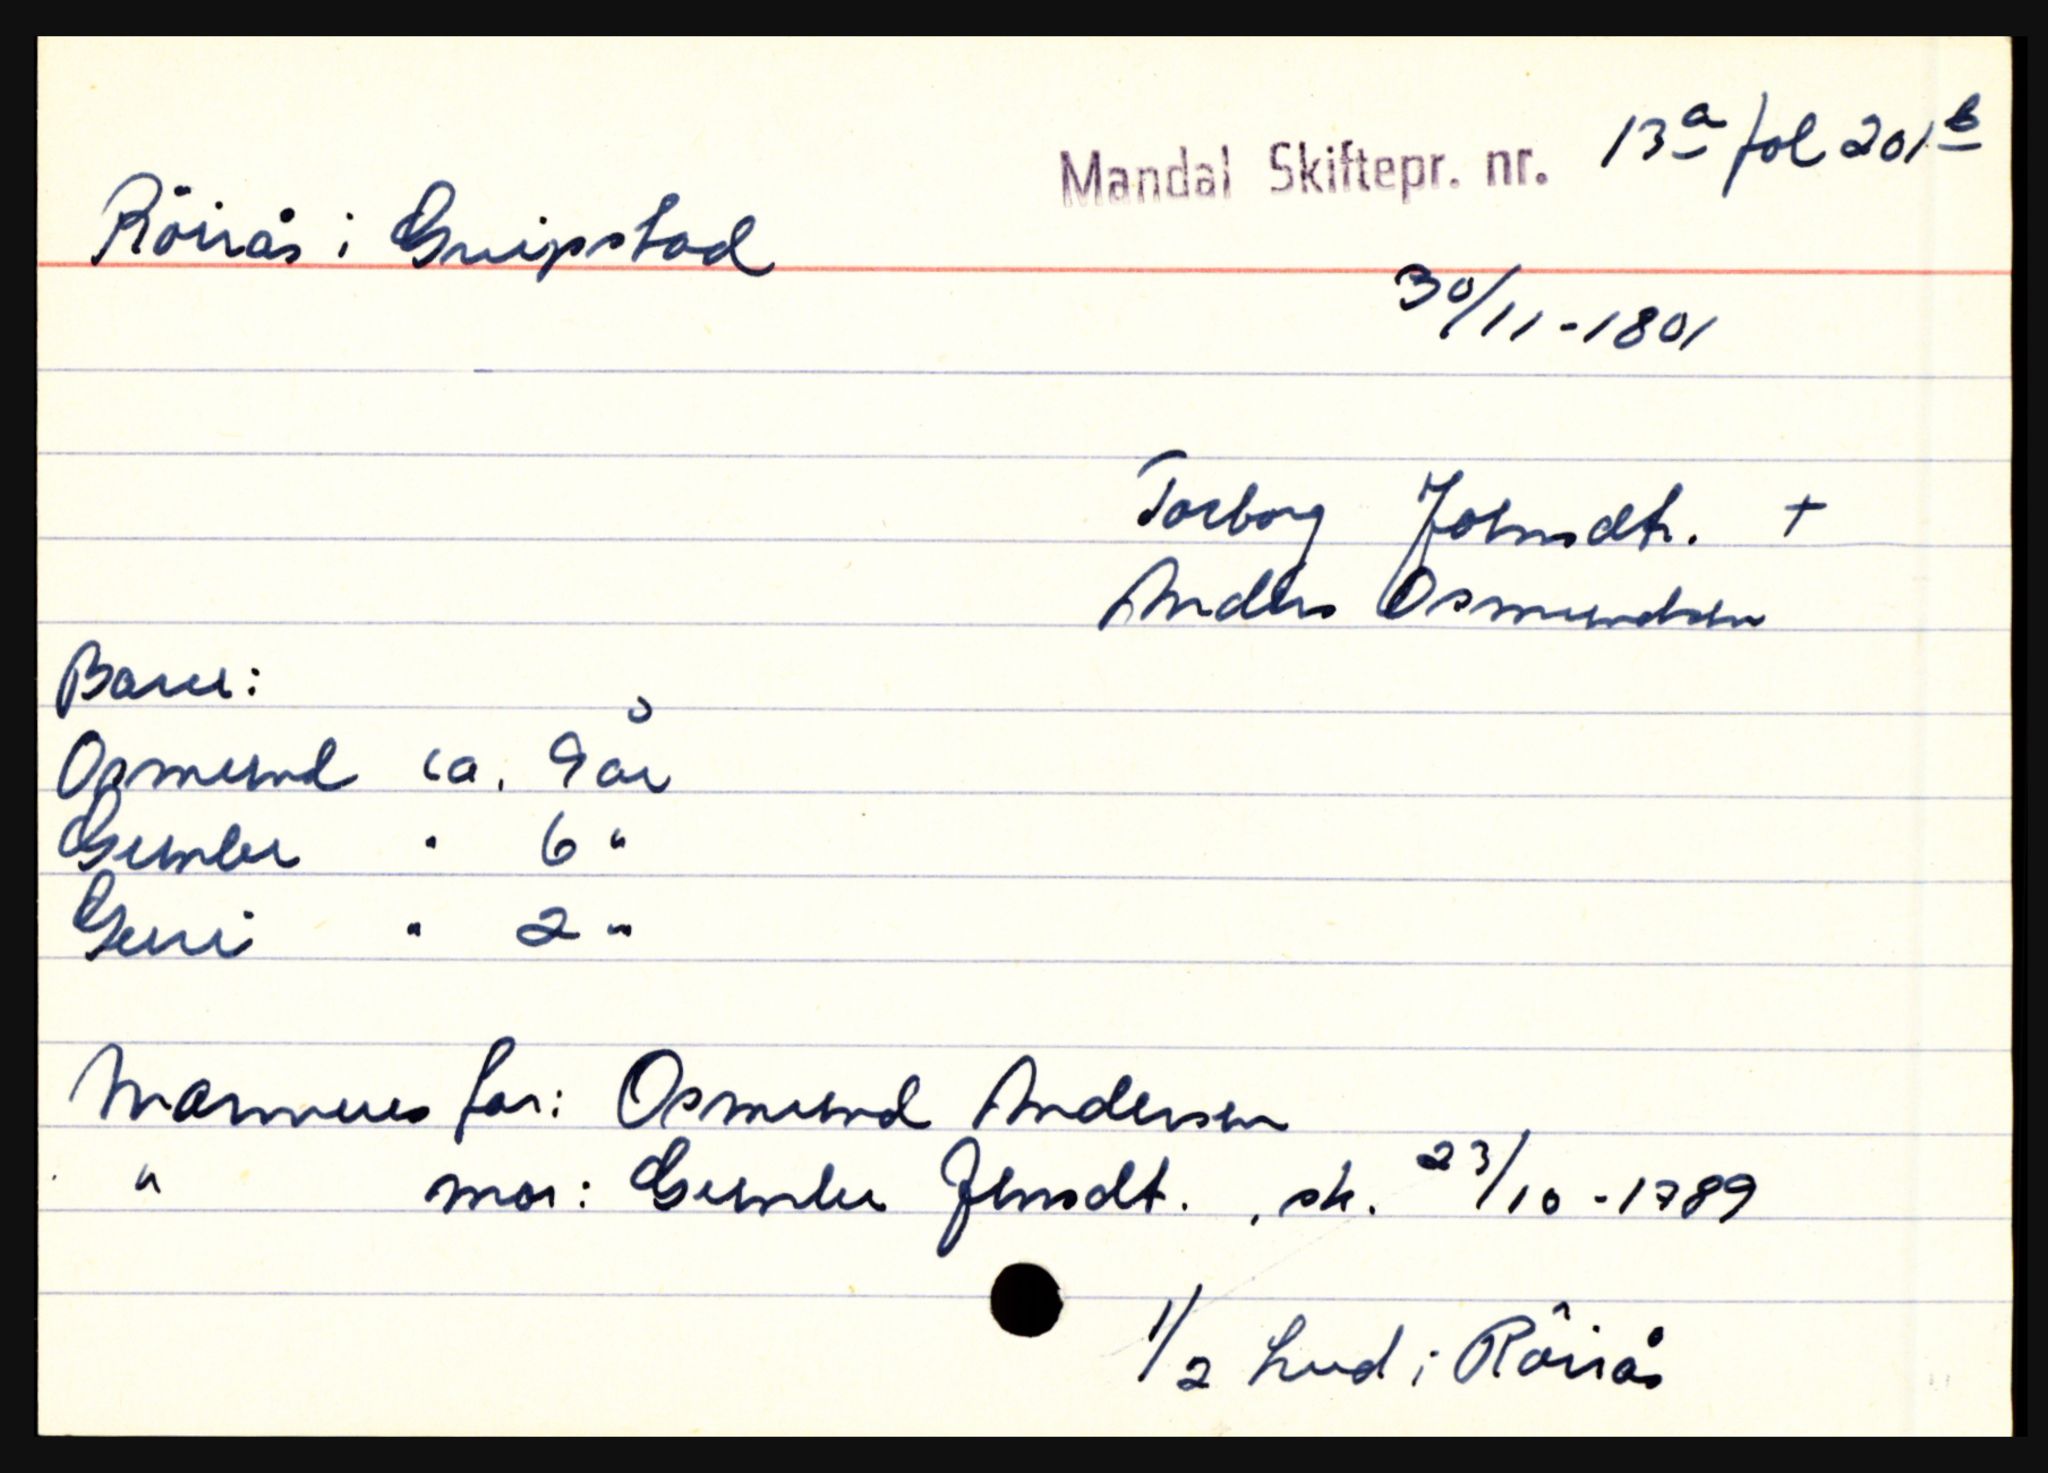 Mandal Skiftepr. nr. 13a fol 201b
Röirås i Greipstad
30/11-1801
Torborg Johnsdtr. +
Anders Osmundsen
Barn:
Osmund ca. 9 år
Gunbor " 6 "
Guri " 2 "
Mannens far: Osmund Andersen
" mor: Gunbor Jensdt. , sk. 23/10-1789
1/2 hud i Röirås